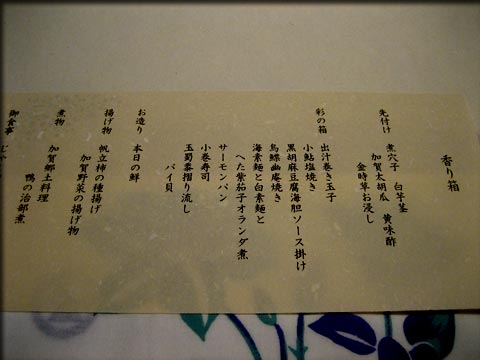 香り箱
先付け 煮穴子 白芋茎
加賀太胡瓜 黄味酢
金時草お浸し
彩の箱 出汁巻き玉子
小鮎塩焼き
黒胡麻豆腐海胆ソース掛け
烏鰈幽庵焼き
海素麺と白素麺と
へた紫茄子オランダ煮
サーモンパン
小巻寿司
玉蜀黍摺り流し
バイ貝
お造り 本日の鮮
揚げ物 帆立柿の種揚げ
加賀野菜の揚げ物
煮物 加賀郷土料理
鴨の治部煮
御食事